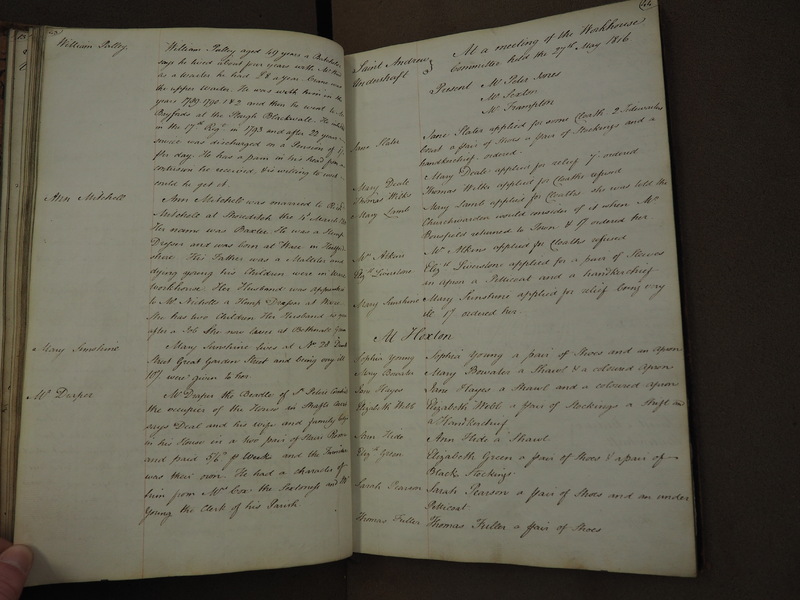 William Pulley
William Pulley aged 49 years a Batchelor
says he lived about four years with Mr
as a waiter he had £8 a year
the upper waiter. He was with him in the
years 1789. 1790. 1 & 2 and then he went to Mr
Byfords at the Plough Blackwall. He
in the 17th Regt in 1793 and after 22 years
service was discharged on a Pension of
per day. He has a pain in his head from a
contusion he received & is willing to work
could he get it.
Ann Mitchell
Ann Mitchell was married to Richd
Mitchell at Shoreditch the March
Her name was Baxter. He was a Hemp
Draper and was born at Ware in
shire. His Father was a Maltster and
dying young his Children were in
workhouse. Her Husband was apprenticed
to Mr Nicholls a Hemp Draper at Ware
She has two Children Her Husband is gone
after a Job She now lives at Bethnal Green
Mary Sunshine
Mary Sunshine lives at No 28
Street Great Garden Street and being very ill
were given to her
Mr Draper
Mr Draper the Beadle of St Peters Cornhill
the occupier of the House in Shafts Court
says Deal and his wife and family lodge
in his House in a two pair of Stairs Room
and paid 5/6 p Week and the Furniture
was their own. He had a character of
him from Mrs Cox the Sextoness and Mr
Young the Clerk of his Parish
44
Saint Andrew
Undershaft
At a meeting of the Workhouse
Committee held the 27th May 1816
Present Mr Peter Jones
Mr Sexton
Mr Frampton
Jane Slater
Jane Slater applied for some Cloaths 2
a pair of Shoes a pair of Stockings and a
handkerchief ordered
Mary Deale
Mary Deale applied for relief ordered
Thomas Wilks
Thomas Wilks applied for Cloaths refused
Mary Lamb
Mary Lamb applied for Cloaths she was told the
Churchwarden would consider of it when Mr
Bousfield returned to Town & 17 ordered her
Mrs Atkins
Mrs Atkins applied for Cloaths refused
Elizth Livenstone
Elizth Livenstone applied for a pair of Sleeves
an apron a Petticoat and a handkerchief
Mary Sunshine
Mary Sunshine applied for relief being very
ill 17 ordered her
At Hoxton
Sophia Young
Sophia Young a pair of Shoes and an apron
Mary Bowater
Mary Bowater a Shawl & a coloured Apron
Jane Hayes
Jane Hayes a Shawl and a coloured Apron
Elizabeth Webb
Elizabeth Webb a pair of Stockings a Shift and
a Handkerchief
Ann Hide
Ann Hide a Shawl
Elizth Green
Elizabeth Green a pair of Shoes & a pair of
Black Stockings
Sarah Pearson
Sarah Pearson a pair of Shoes and an under
Petticoat
Thomas Fuller
Thomas Fuller a pair of Shoes